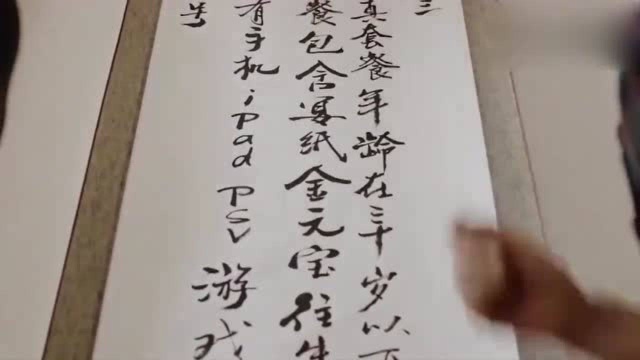 三
真套餐年龄在三十岁以下
餐包含冥纸金元宝往生
有手机ipadpsv游戏
号